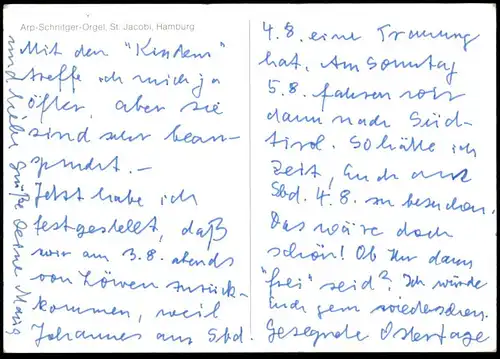 Arp-Schnitger-Orgel, St. Jacobi, Hamburg
Mit den "Kindern"
treffe ich mich ja
öfter, aber sie
sind sehr bean-
sprucht. –
Jetzt habe ich
festgestellt, daß
wir am 3.8. abends
von Löwen zurück-
kommen, weil
Johannes am Sbd.
4.8. eine Trauung
hat. Am Sonntag
5.8. fahren wir
dann nach Süd-
tirol. So hätte ich
Zeit, Euch am
Sbd. 4.8. zu besuchen.
Das wäre doch
schön! Ob Ihr dann
"frei" seid? Ich würde
Euch gern wiedersehen.
Gesegnete Ostertage
und liebe Grüße Deine